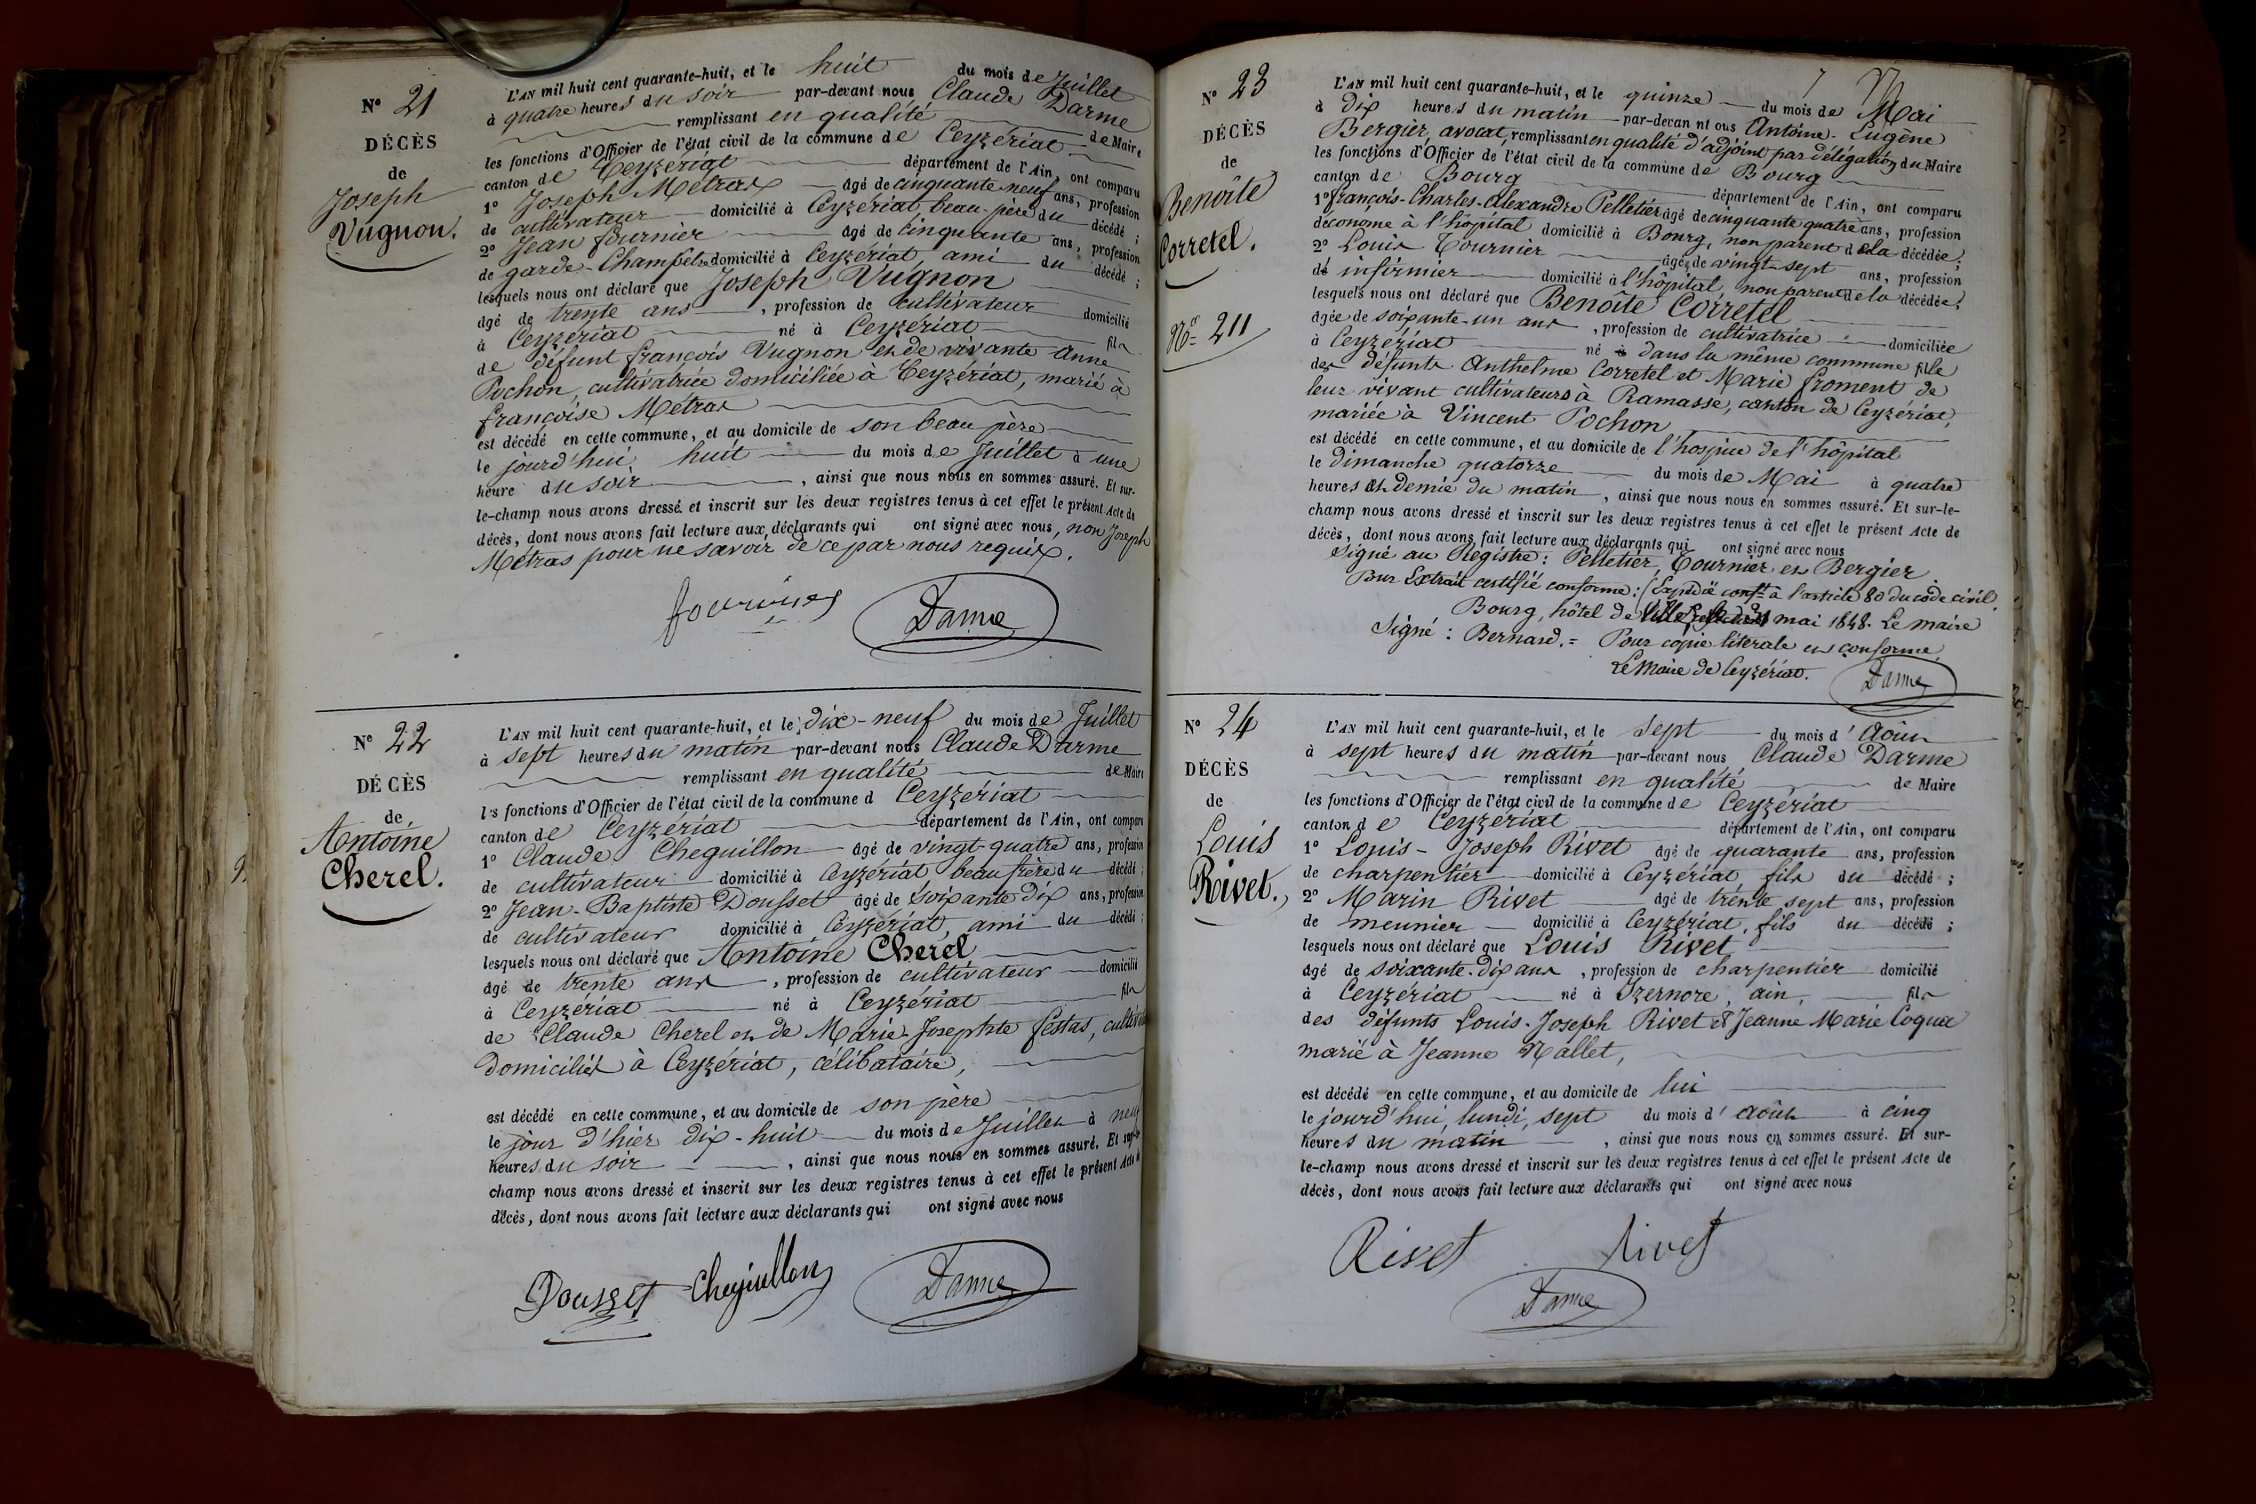 N° 21
DÉCÈS
de
Joseph
Vugnon.
L'AN mil huit cent quarante-huit, et le huit du mois de Juillet
à quatre heures du soir par-devant nous Claude Darme
remplissant en qualité de Maire
les fonctions d'Officier de l'état civil de la commune de Ceyzériat
canton de Ceyzériat département de l'Ain, ont comparu
1° Joseph Métras âgé de cinquante neuf ans, profession
de cultivateur domicilié à Ceyzériat, beau-père du décédé ;
2° Jean fournier âgé de cinquante ans, profession
de garde-Champêtre domicilié à Ceyzériat, ami du décédé ;
lesquels nous ont déclaré que Joseph Vugnon
âgé de trente ans , profession de cultivateur domicilié
à Ceyzériat né à Ceyzériat fils
de défunt françois Vugnon et de vivante Anne
Pochon, cultivatrice domiciliée à Ceyzériat, marié à
françoise Métras
est décédé en cette commune, et au domicile de son beau père
le jourd'hui huit du mois de Juillet à une
heure du soir , ainsi que nous nous en sommes assuré. Et sur-
le-champ nous avons dressé et inscrit sur les deux registres tenus à cet effet le présent Acte de
décès, dont nous avons fait lecture aux déclarants qui ont signé avec nous, non Joseph
Métras pour ne savoir de ce par nous requix.
fournier Darme
N° 22
DÉCÈS
de
Antoine
Cherel.
L'AN mil huit cent quarante-huit, et le dix-neuf du mois de Juillet
à sept heures du matin par-devant nous Claude Darme
remplissant en qualité de Maire
les fonctions d'Officier de l'état civil de la commune d Ceyzériat
canton de Ceyzériat département de l'Ain, ont comparu
1° Claude Cheguillon âgé de vingt-quatre ans, profession
de cultivateur domicilié à Ceyzériat beau frère du décédé ;
2° Jean-Baptiste Dousset âgé de soixante dix ans, profession
de cultivateur domicilié à Ceyzériat, ami du décédé ;
lesquels nous ont déclaré que Antoine Cherel
âgé de trente ans , profession de cultivateur domicilié
à Ceyzériat né à Ceyzériat fils
de Claude Cherel et de Marie-Josephte festas,
domiciliés à Ceyzériat, célibataire,
est décédé en cette commune, et au domicile de son père
le jour d'hier dix-huit du mois de Juillet à neuf
heures du soir , ainsi que nous nous en sommes assuré. Et sur-le-
champ nous avons dressé et inscrit sur les deux registres tenus à cet effet le présent Acte de
décès, dont nous avons fait lecture aux déclarants qui ont signé avec nous
Dousset Cheguillon Darme
N° 23
DÉCÈS
de
Benoîte
Corretel.
N° 211
L'AN mil huit cent quarante-huit, et le quinze du mois de Mai
à dix heures du matin par-devant nous Antoine-Eugène
Bergier, avocat, remplissant en qualité d'adjoint par délégation du Maire
les fonctions d'Officier de l'état civil de la commune de Bourg
canton de Bourg département de l'Ain, ont comparu
1° françois-Charles-Alexandre Pelletier âgé de cinquante quatre ans, profession
d'économe à l'hôpital domicilié à Bourg, non parent de la décédée ;
2° Louis Tournier âgé de vingt-sept ans, profession
d'infirmier domicilié à l'hôpital, non parent de la décédée ;
lesquels nous ont déclaré que Benoîte Corretel
âgée de soixante-un ans , profession de cultivatrice domiciliée
à Ceyzériat né à dans la même commune fille
des défunts Anthelme Corretel et Marie froment de
leur vivant cultivateurs à Ramasse, canton de Ceyzériat,
mariée à Vincent Pochon
est décédé en cette commune, et au domicile de l'hospice de l'hôpital
le dimanche quatorze du mois de Mai à quatre
heures et demie du matin , ainsi que nous nous en sommes assuré. Et sur-le-
champ nous avons dressé et inscrit sur les deux registres tenus à cet effet le présent Acte de
décès, dont nous avons fait lecture aux déclarants qui ont signé avec nous
Signé au Registre : Pelletier, Tournier et Bergier
Pour Extrait certifié conforme : (Expédié conft à l'article 80 du code civil.
Bourg, hôtel de mai 1848. Le maire
Signé : Bernard. = Pour copie literale et conforme,
Le Maire de Ceyzériat. Darme
N° 24
DÉCÈS
de
Louis
Rivet.
L'AN mil huit cent quarante-huit, et le sept du mois d'Août
à sept heures du matin par-devant nous Claude Darme
remplissant en qualité de Maire
les fonctions d'Officier de l'état civil de la commune de Ceyzériat
canton de Ceyzériat département de l'Ain, ont comparu
1° Louis-Joseph Rivet âgé de quarante ans, profession
de charpentier domicilié à Ceyzériat fils du décédé ;
2° Marin Rivet âgé de trente sept ans, profession
de meunier domicilié à Ceyzériat, fils du décédé ;
lesquels nous ont déclaré que Louis Rivet
âgé de soixante-dix ans , profession de charpentier domicilié
à Ceyzériat né à Izernore, ain, fils
des défunts Louis-Joseph Rivet et Jeanne Marie Coquet
marié à Jeanne Nallet,
est décédé en cette commune, et au domicile de lui
le jourd'hui, lundi, sept du mois d'août à cinq
heures du matin , ainsi que nous nous en sommes assuré. Et sur-
le-champ nous avons dressé et inscrit sur les deux registres tenus à cet effet le présent Acte de
décès, dont nous avons fait lecture aux déclarants qui ont signé avec nous
Rivet Rivet
Darme